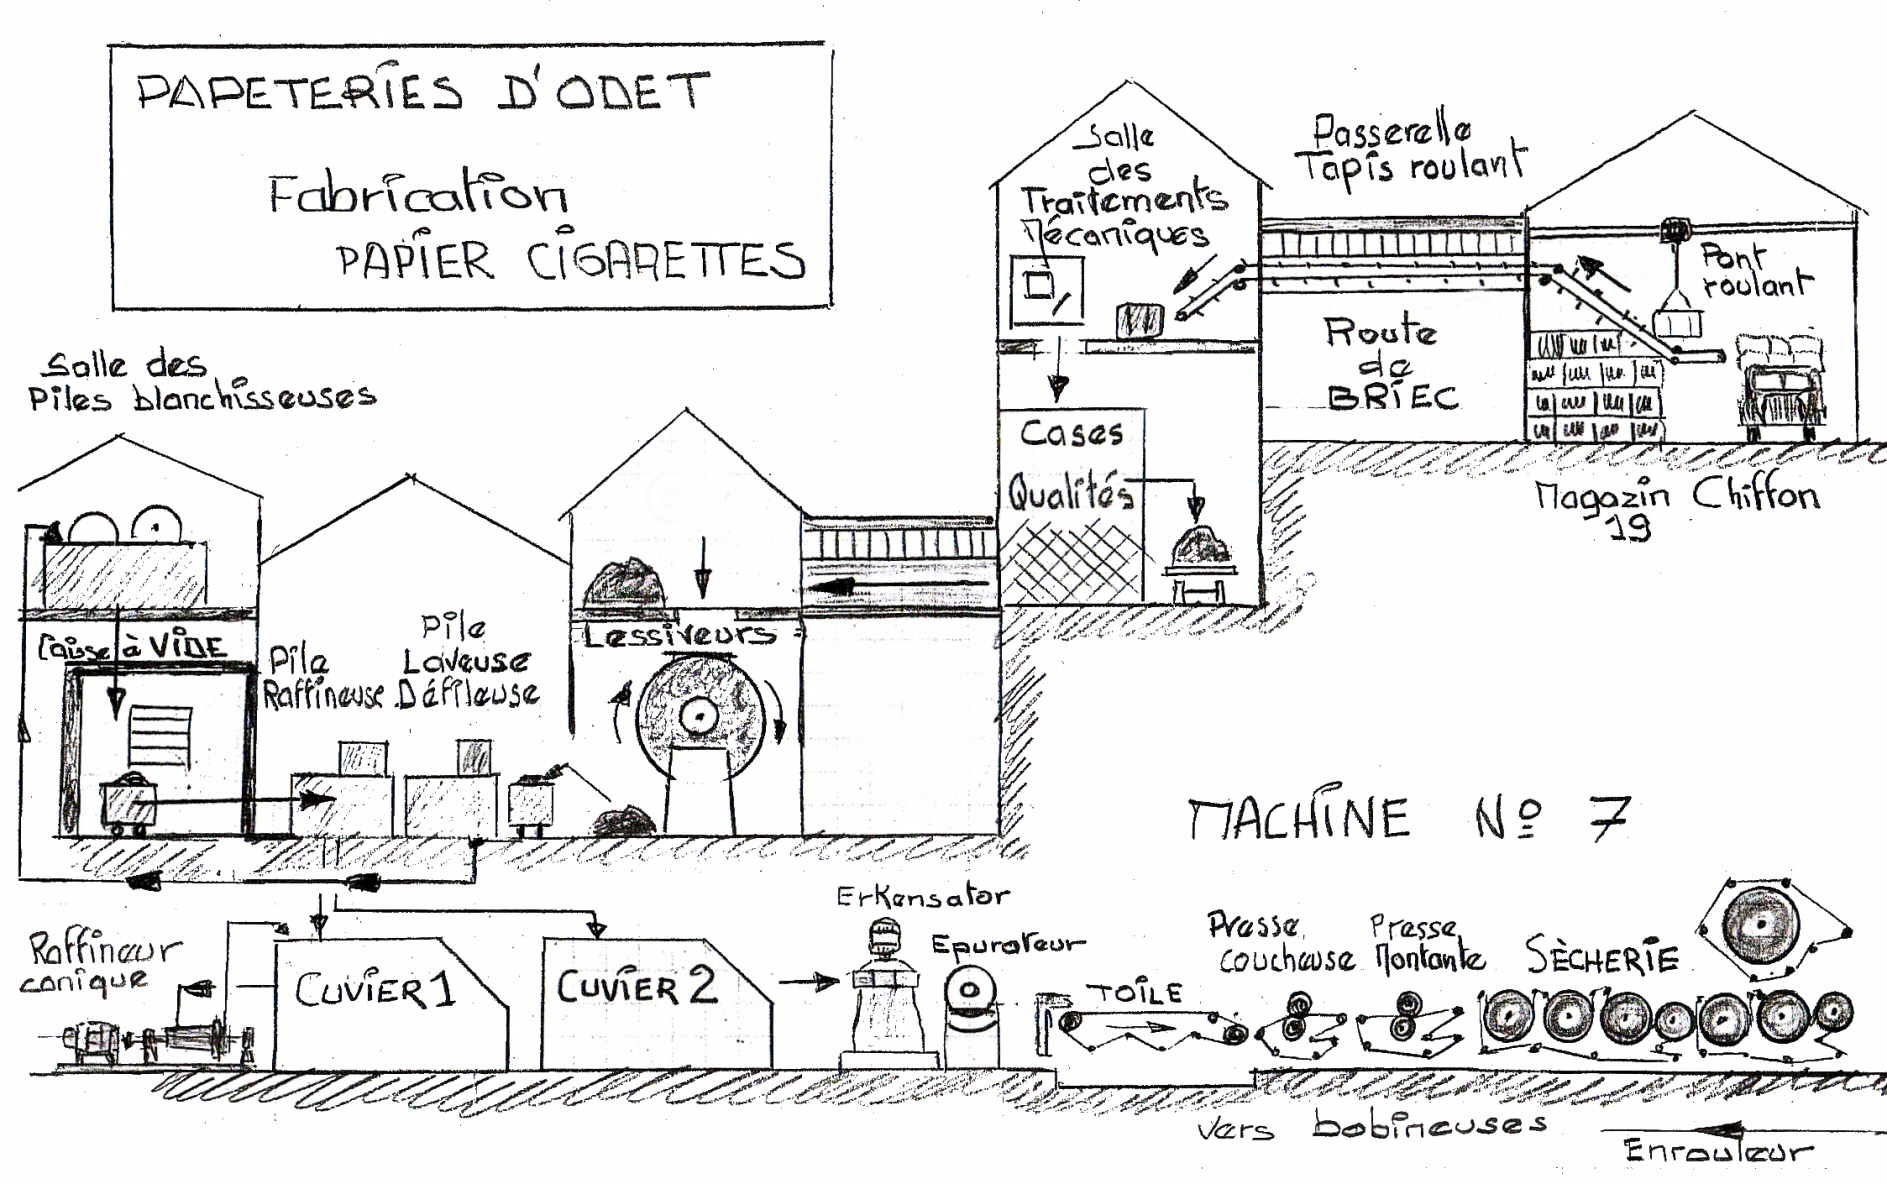 PAPETERIES D'ODET
Fabrication
PAPIER CIGARETTES
Salle
des
Traitements
Mécaniques
Passerelle
Tapis roulant
Pont
roulant
Route
de
BRIEC
Magazin Chiffon
19
Cases
Qualités
Salle des
Piles blanchisseuses
Caisse à VIDE
Pile
Raffineuse
Pile
Laveuse
Défileuse
Lessiveurs
MACHINE Nº 7
Raffineur
conique
CUVIER 1
CUVIER 2
Erkensator
Epurateur
TOILE
Presse
coucheuse
Presse
Montante
SÈCHERIE
vers bobineuses
Enrouleur